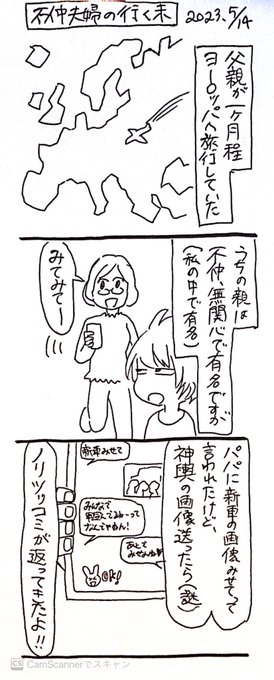 不仲夫婦の行く末
2023.5/14
父親が一ヶ月程
ヨーロッパへ旅行していた
うちの親は
不仲、無関心で有名ですが
(私の中で有名)
みてみて〜
パパに新車の画像みせてって
言われたけど、
神輿の画像送ったら(謎)
新車みせて
みんなで
あとで
みせんね
OK!
ノリツッコミが返ってきたよ!!
CS CamScannerでスキャン